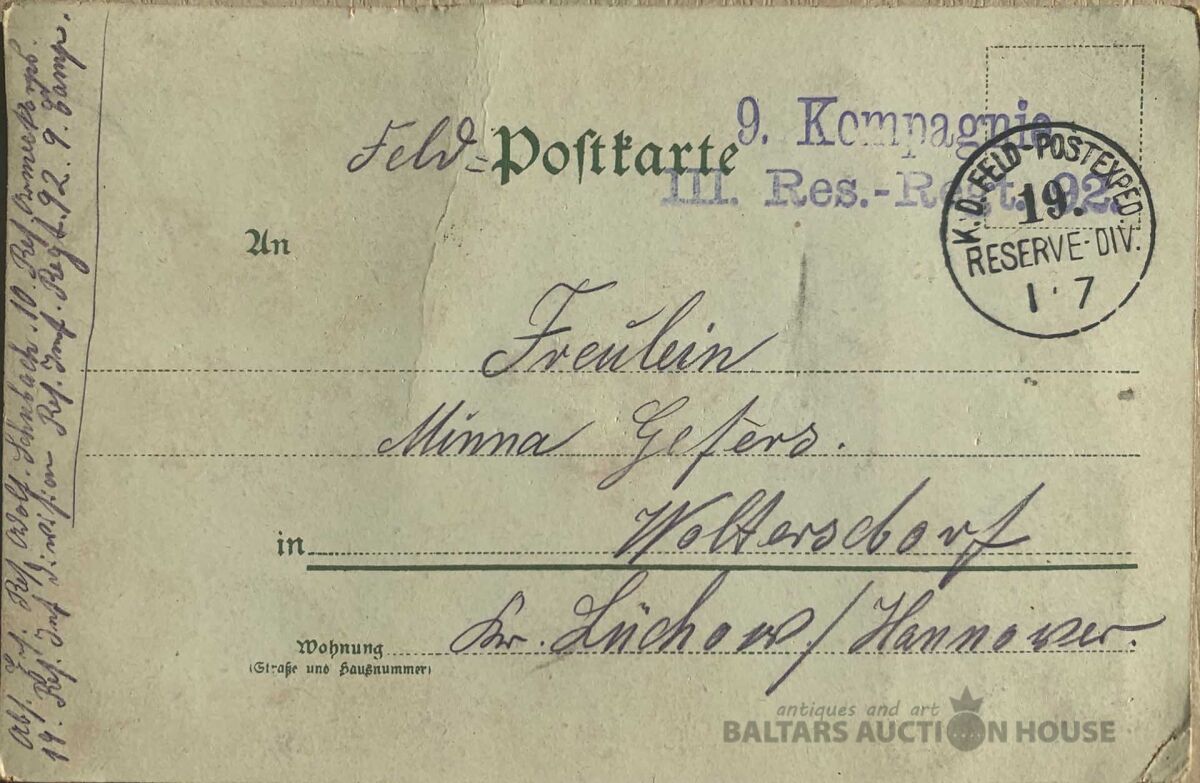 Feld-Postkarte
9. Kompagnie
III. Res.-Regt. 92.
K. D. FELD-POSTEXPED.
19.
RESERVE-DIV.
1 · 7
An
Freulein
Minna Gefers.
in Woltersdorf
Kr. Lüchow / Hannover.
Wohnung
(Straße und Hausnummer)
Abs. Ers. Res. Adolf. Schnbach. 10. Res. Armeekorps.
19. Res. Inf. Division Res. Inf. Regt. 92. 9. Komp.
antiques and art
BALTARS AUCTION HOUSE